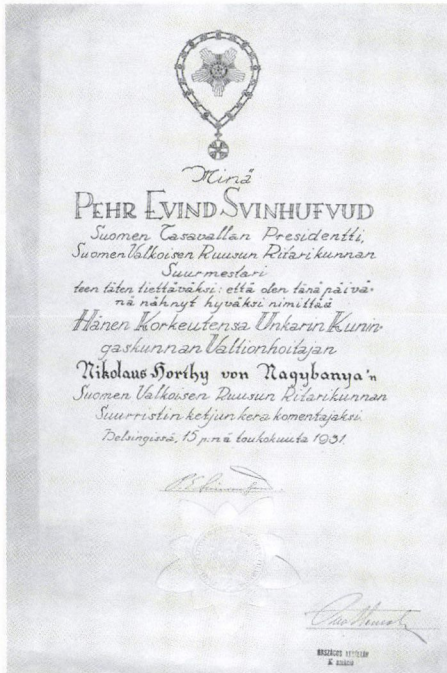 Minä
PEHR EVIND SVINHUFVUD
Suomen Tasavallan Presidentti,
Suomen Valkoisen Ruusun Ritarikunnan
Suurmestari
teen täten tiettäväksi: että olen tänä päivä-
nä nähnyt hyväksi nimittää
Hänen Korkeutensa Unkarin Kunin-
gaskunnan Valtionhoitajan
Nikolaus Horthy von Nagybanya'n
Suomen Valkoisen Ruusun Ritarikunnan
Suurristin ketjun kera komentajaksi.
Helsingissä, 15 p:nä toukokuuta 1931
ORSZÁGOS LEVÉLTÁR
K szekció